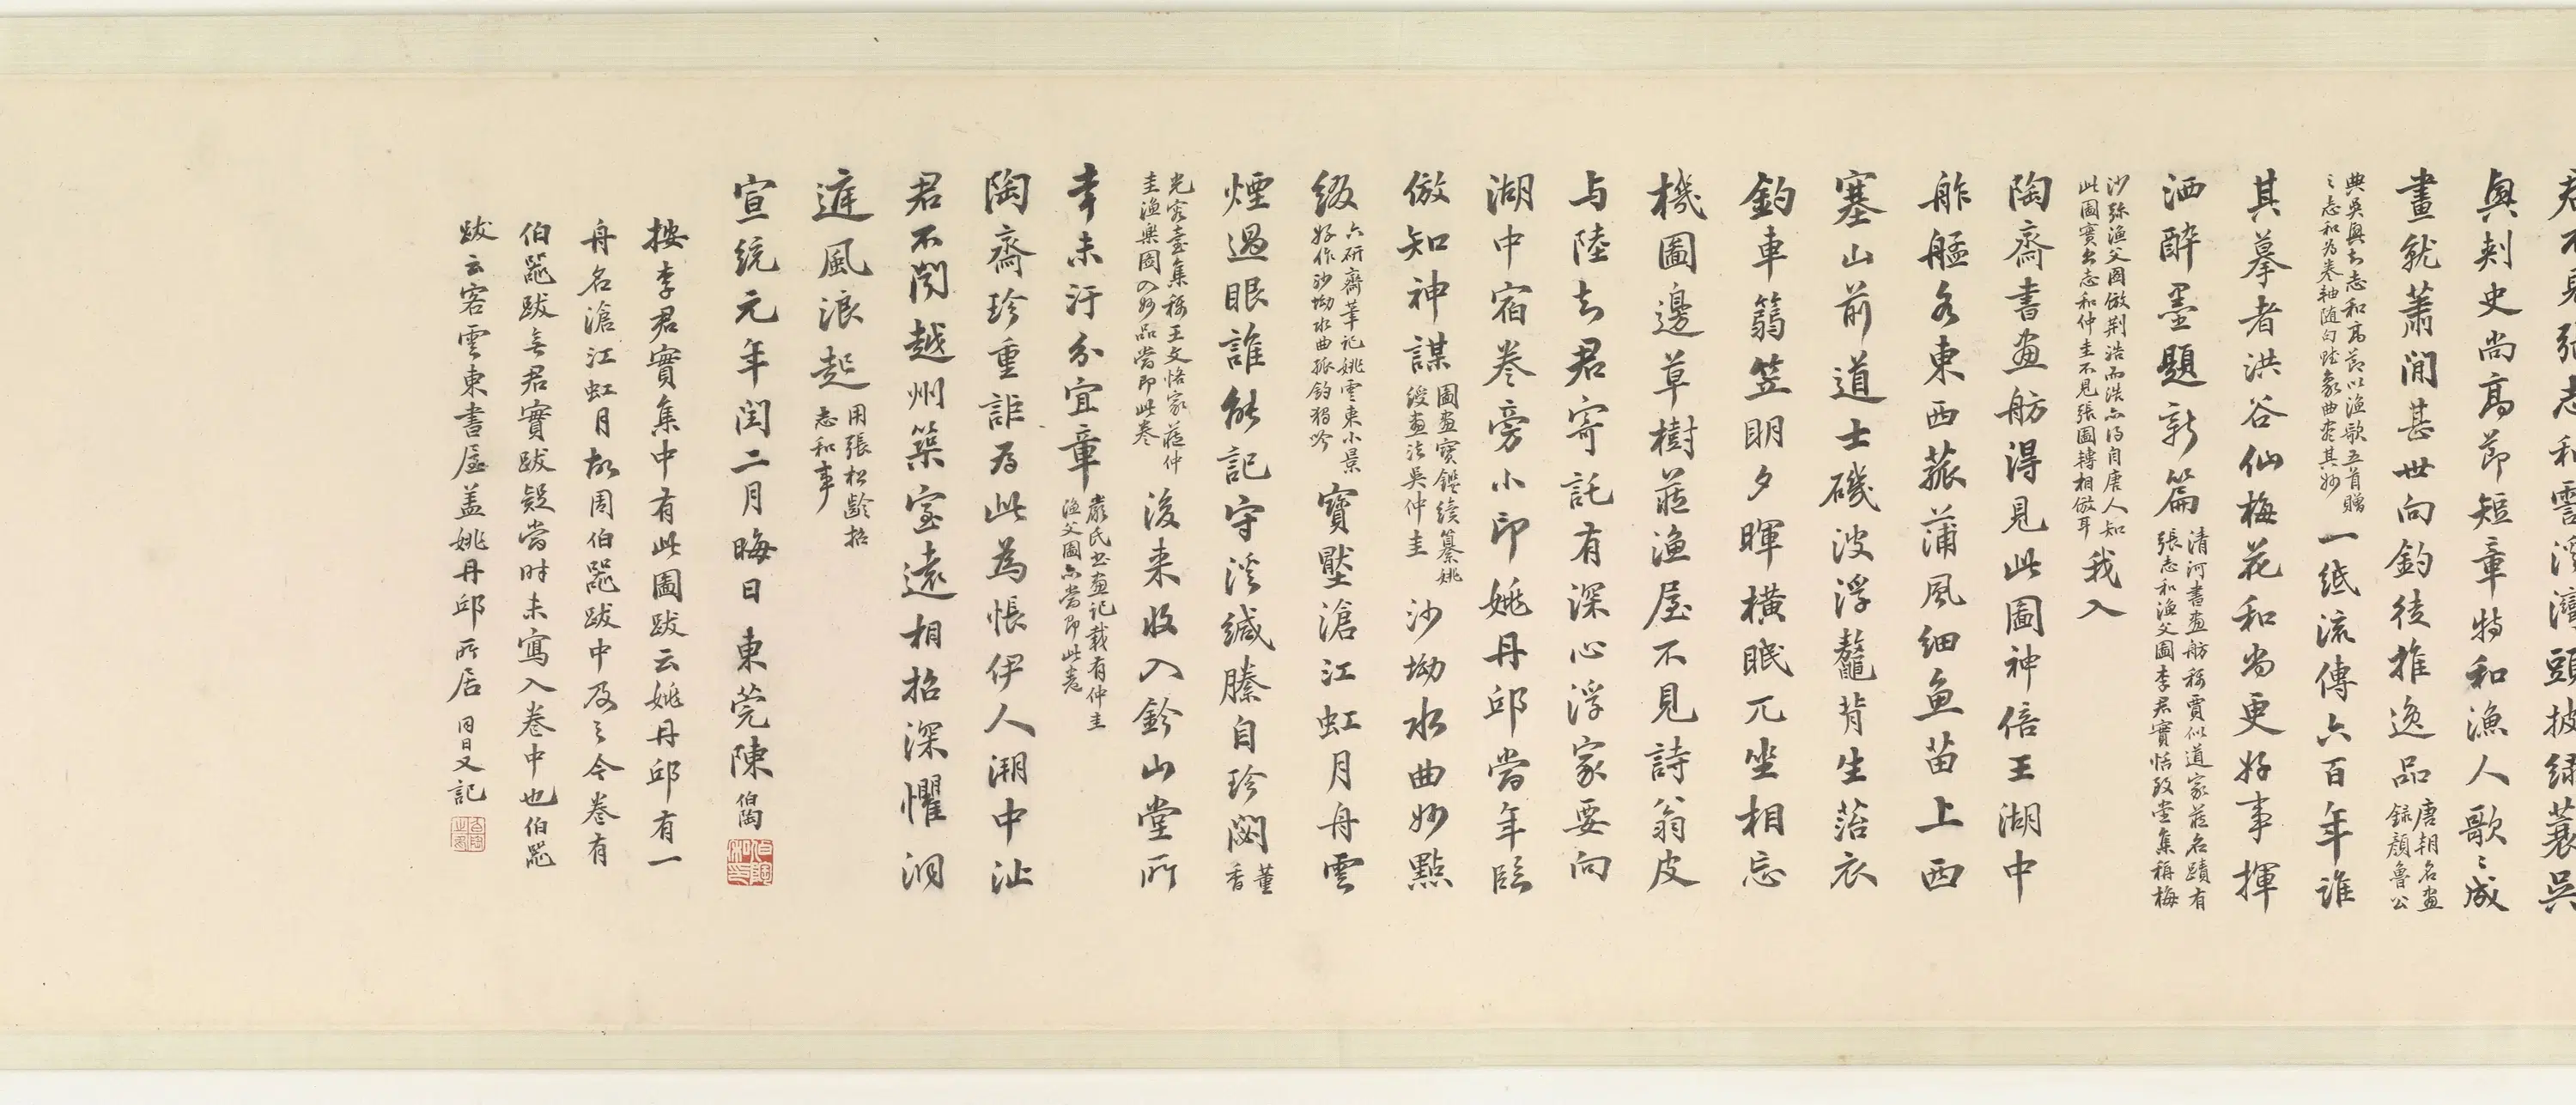 君不見張志和雪溪灣頭披綠蓑吳
興刺史尚高節短章特和漁人歌〻成
畫就蕭閒甚世向釣徒推逸品
唐朝名畫
錄顏魯公
典吳興知志和高節以漁歌五首贈
之志和為卷軸隨句賦象曲盡其妙
一紙流傳六百年誰
其摹者洪谷仙梅花和尚更好事揮
洒醉墨題新篇
清河書畫舫稱賈似道家藏名蹟有
張志和漁父圖李君實恬致堂集稱梅
沙彌漁父圖倣荊浩而浩亦得自唐人知
此圖實出志和仲圭不見張圖轉相倣耳
我入
陶齋書畫舫得見此圖神倍王湖中
舴艋各東西菰蒲風細魚苗上西
塞山前道士磯波浮鼇背生落衣
釣車篛笠明夕暉橫眠兀坐相忘
機圖邊草樹藏漁屋不見詩翁皮
与陸知君寄託有深心浮家要向
湖中宿卷旁小印姚丹邱當年臨
倣知神謀
圖畫寶鑑續纂姚
綬畫法吳仲圭
沙坳水曲妙點
綴
六研齋筆記姚雲東小景
好作沙坳水曲孤釣獨吟
寶墅滄江虹月舟雲
煙過眼誰能記守溪緘縢自珍閟
董
香
光容臺集稱王文恪家藏仲
圭漁樂圖入妙品當即此卷
後来收入鈐山堂所
幸未汙分宜章
嚴氏書畫記載有仲圭
漁父圖亦當即此卷
陶齋珍重詎為此為悵伊人溯中沚
君不聞越州築室遠相招深懼洞
遮風浪起
用張松齡招
志和事
宣統元年閏二月晦日 東莞陳伯陶
按李君實集中有此圖跋云姚丹邱有一
舟名滄江虹月故周伯器跋中及之今卷有
伯器跋無君實跋疑當時未寫入卷中也伯器
跋云客雲東書屋蓋姚丹邱所居 同日又記